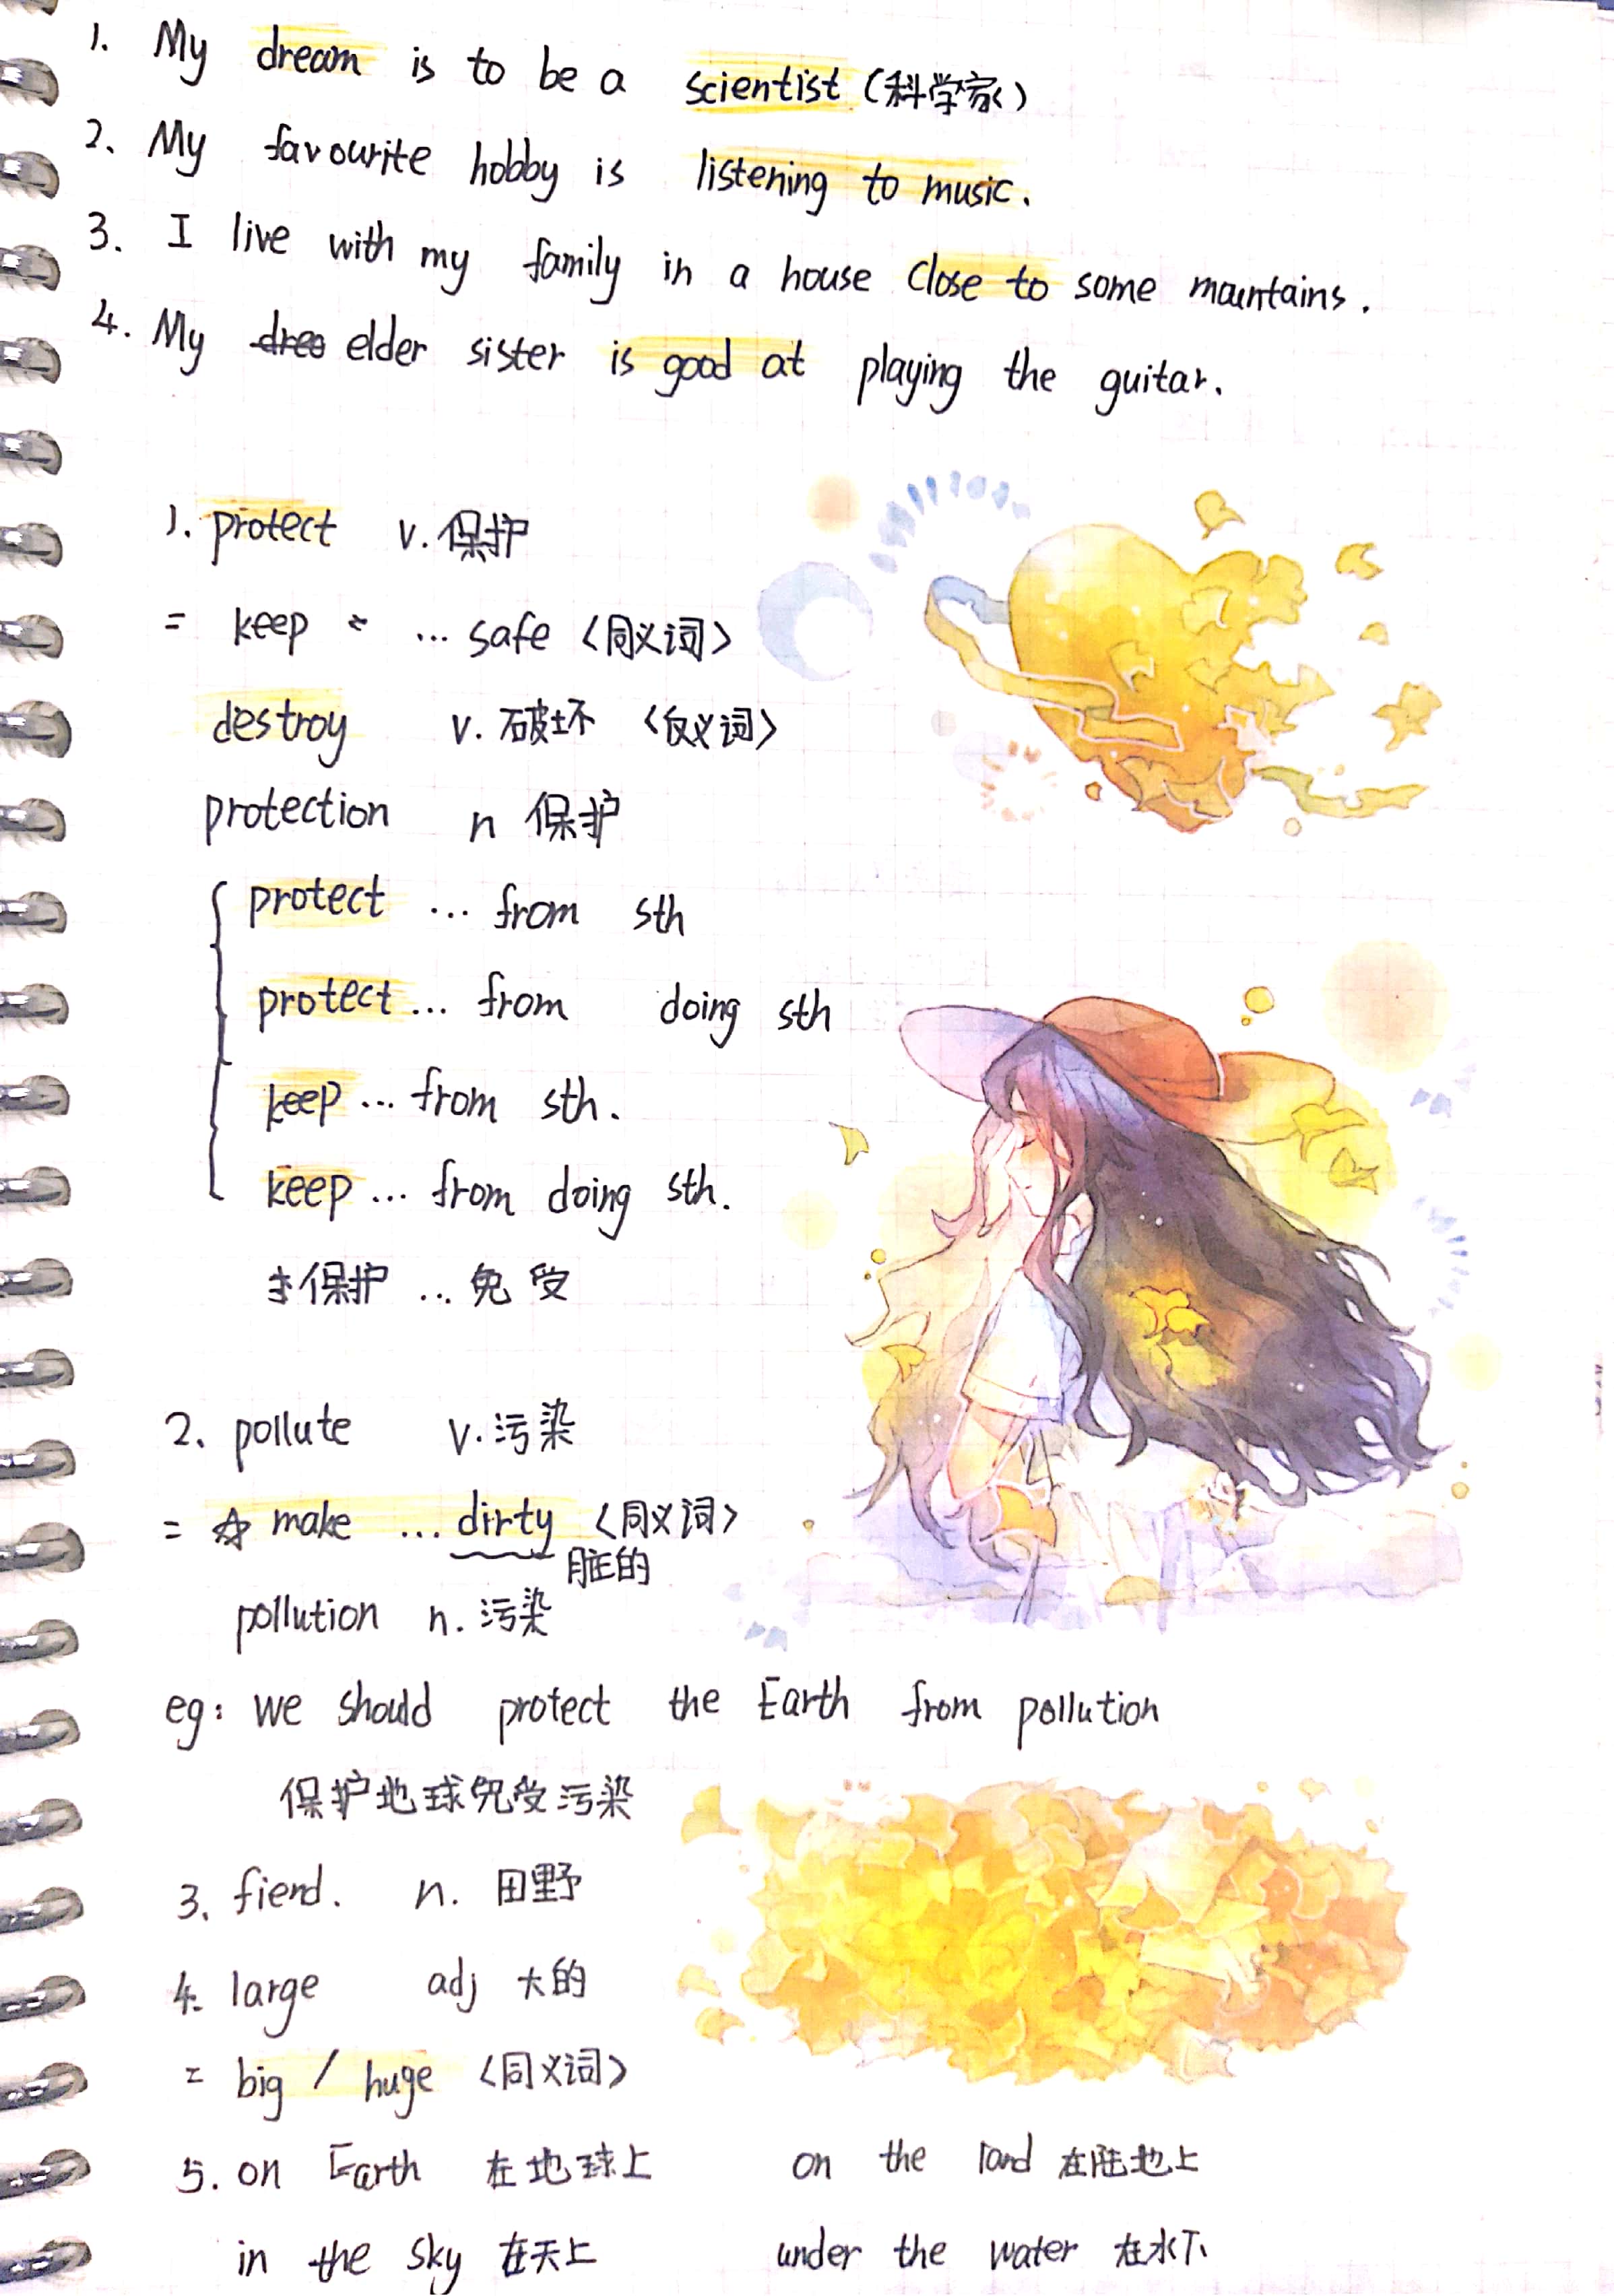 1. My dream is to be a scientist (科学家)
2. My favourite hobby is listening to music.
3. I live with my family in a house close to some mauntains.
4. My elder sister is good at playing the guitar.
1. protect v. 保护
= keep ... safe <同义词>
destroy v. 破坏 <反义词>
protection n 保护
protect ... from sth
protect ... from doing sth
keep ... from sth.
keep ... from doing sth.
保护 ... 免受
2. pollute v. 污染
= ☆ make ... dirty <同义词>
脏的
pollution n. 污染
eg: we should protect the Earth from pollution
保护地球免受污染
3. fiend. n. 田野
4. large adj 大的
= big / huge <同义词>
5. on Earth 在地球上 on the land 在陆地上
in the sky 在天上 under the water 在水下